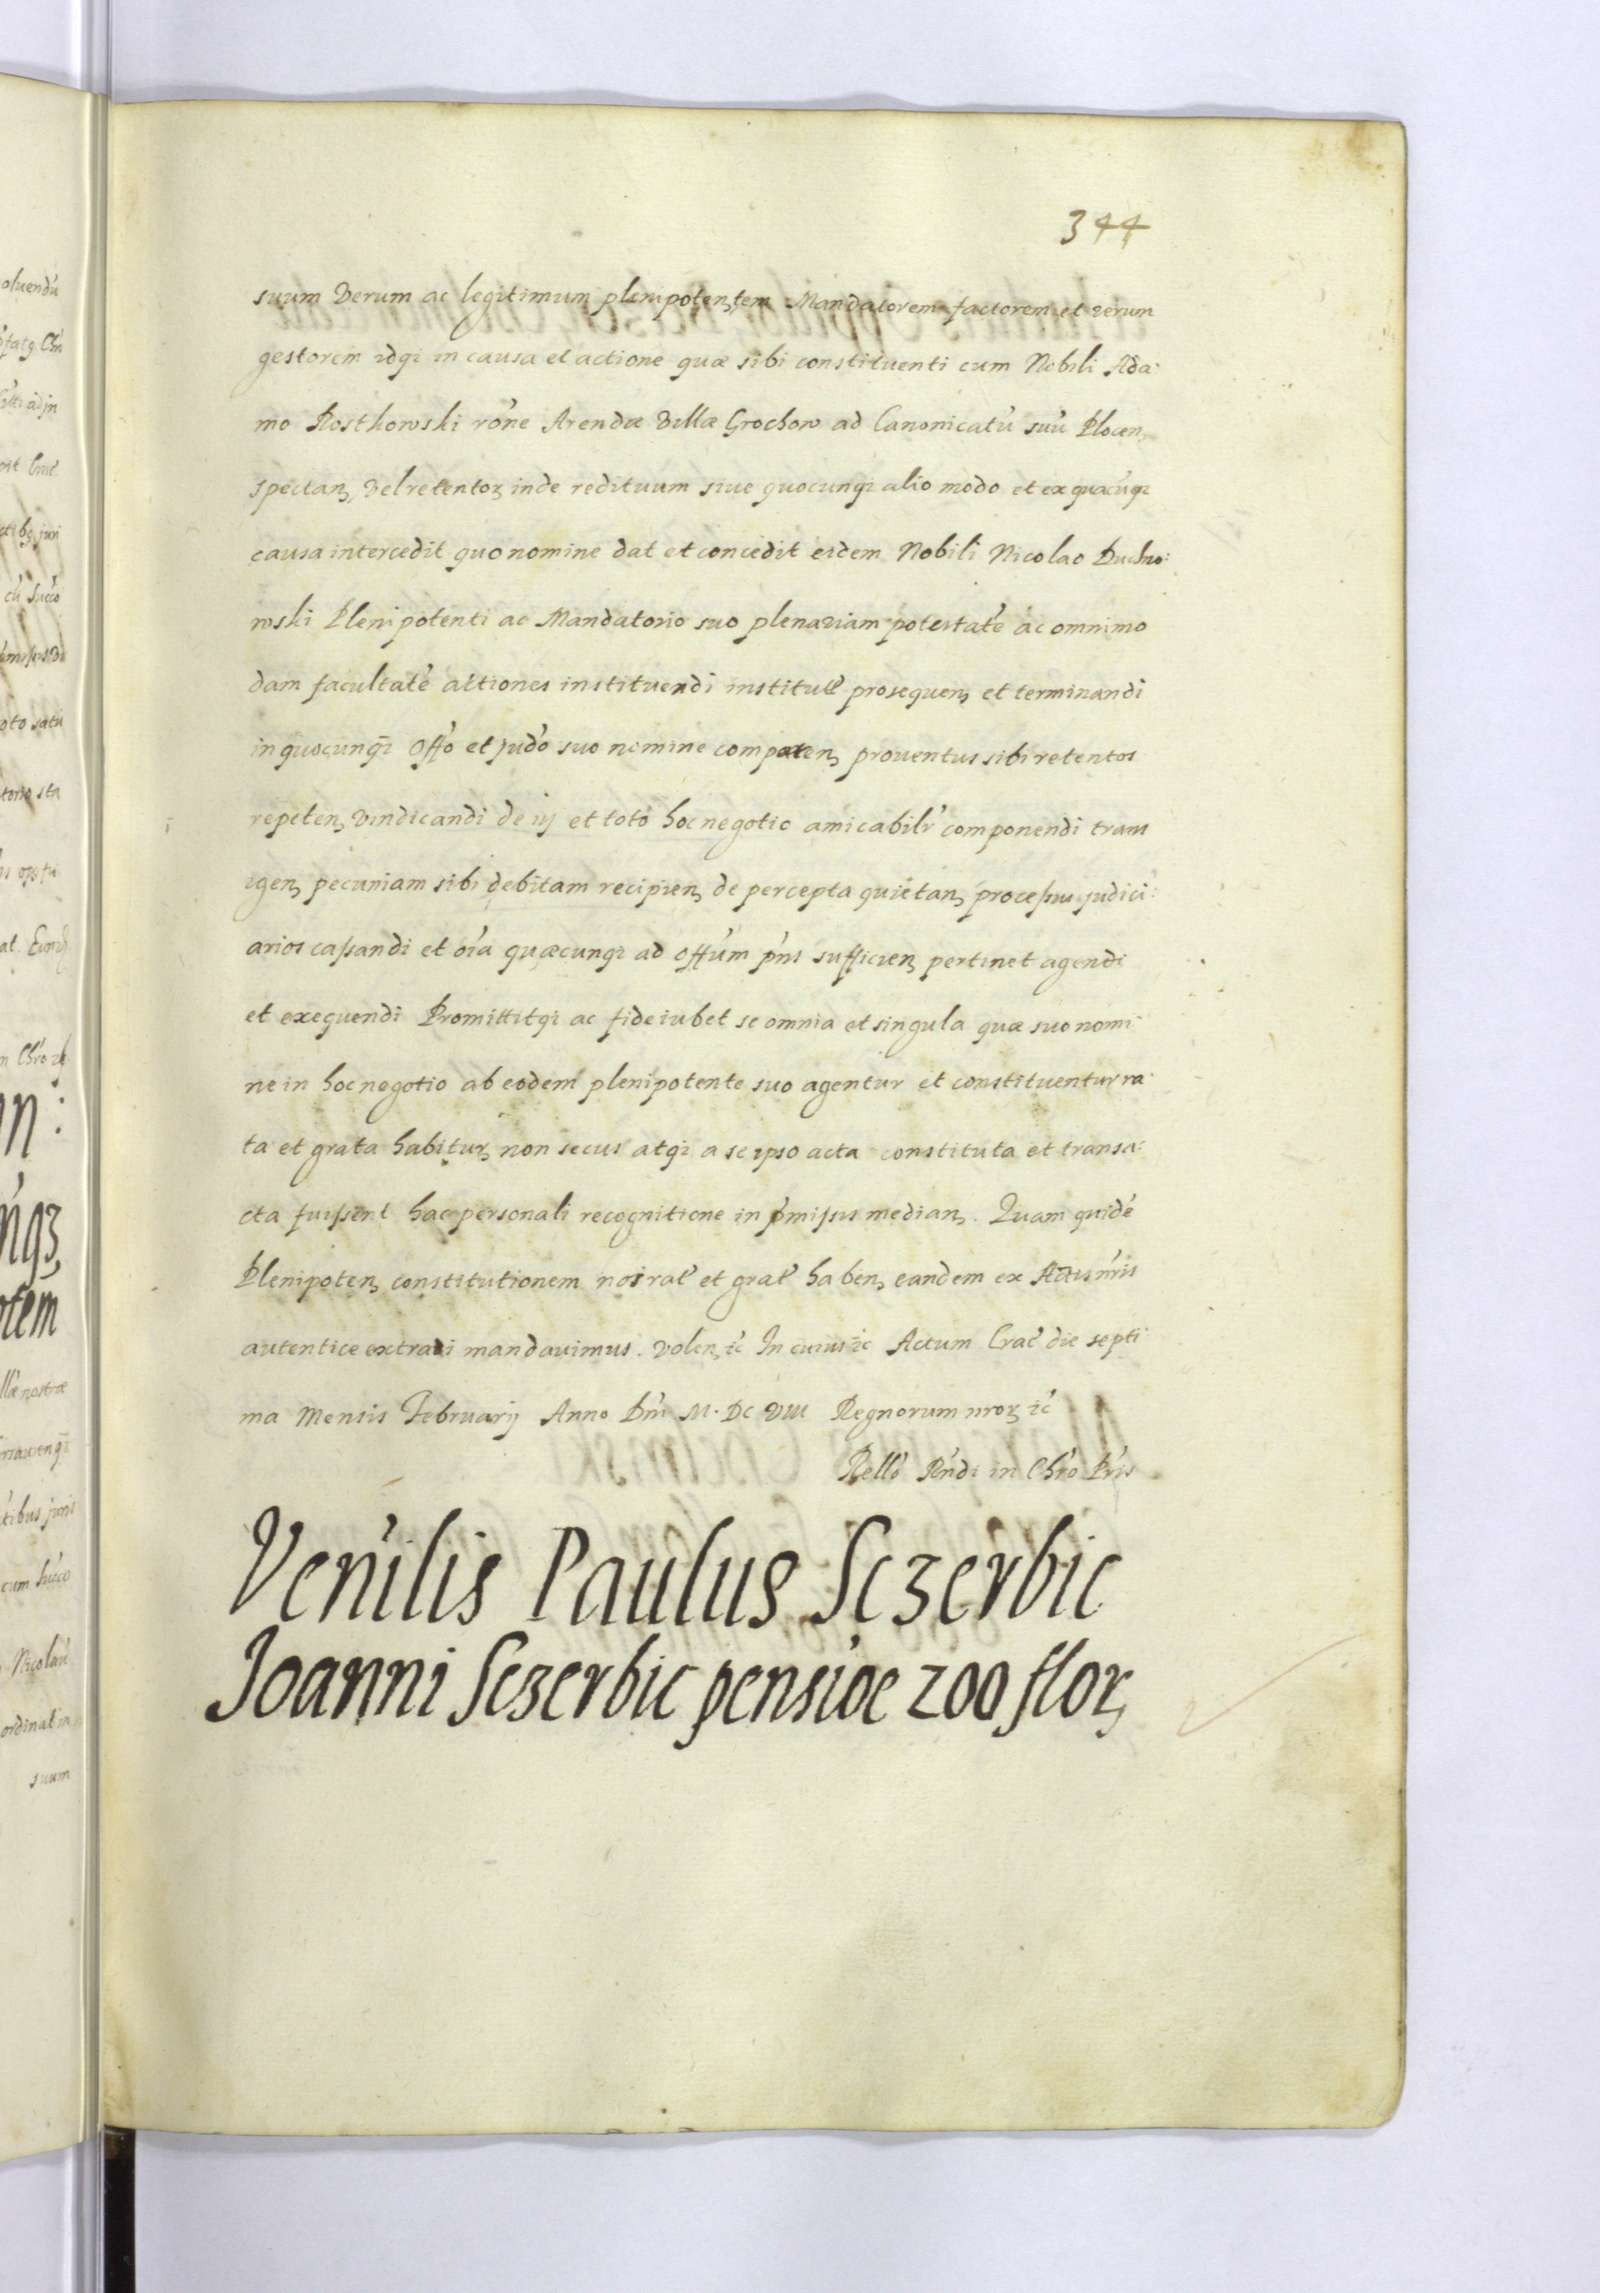 344
suum verum ac legitimum plenipotentem Mandatorem factorem et rerum
gestorem idq; in causa et actione quæ sibi constituenti cum Nobili Ada:
mo Rostkowski rōne Arendæ Villæ Grochow ad Canonicatū suū Plocen,
spectan, vel retentoꝝ inde redituum siue quocunq; alio modo et ex quacūq;
causa intercedit quo nomine dat et concedit eidem Nobili Nicolao Duchno:
wski Plenipotenti ac Mandatorio suo plenariam potestatē ac omnimo
dam facultatē actiones instituendi institut prosequen, et terminandi
in quocunq; Offō et judō suo nomine comparen, prouentus sibi retentos
repeten, vindicandi de iis et toto hoc negotio amicabilr componendi trans
igen, pecuniam sibi debitam recipien, de percepta quietan, processus judici:
arios cassandi et oīa quæcunq; ad offūm pn̄s sufficien, pertinet agendi
et exequendi Promittitq; ac fideiubet se omnia et singula quæ suo nomi:
ne in hoc negotio ab eodem plenipotente suo agentur et constituentur ra:
ta et grata habitur, non secus atq; a se ipso acta constituta et transa:
cta fuissent hac personali recognitione in pmissis median,. Quam quidē
Plenipoten, constitutionem nos rat et grat haben, eandem ex Actis nr̄is
autentice extradi mandauimus. Volen, &c In cuius &c Actum Crac̄ die septi
ma Mensis Februarij Anno Dn̄i M.DC VIII Regnorum nroꝝ &c
Rellō Rn̄di in Chr̄o Pr̄is
Ven̄ilis Paulus Sczerbic
Joanni Sczerbic pensiōe 200 floꝝ